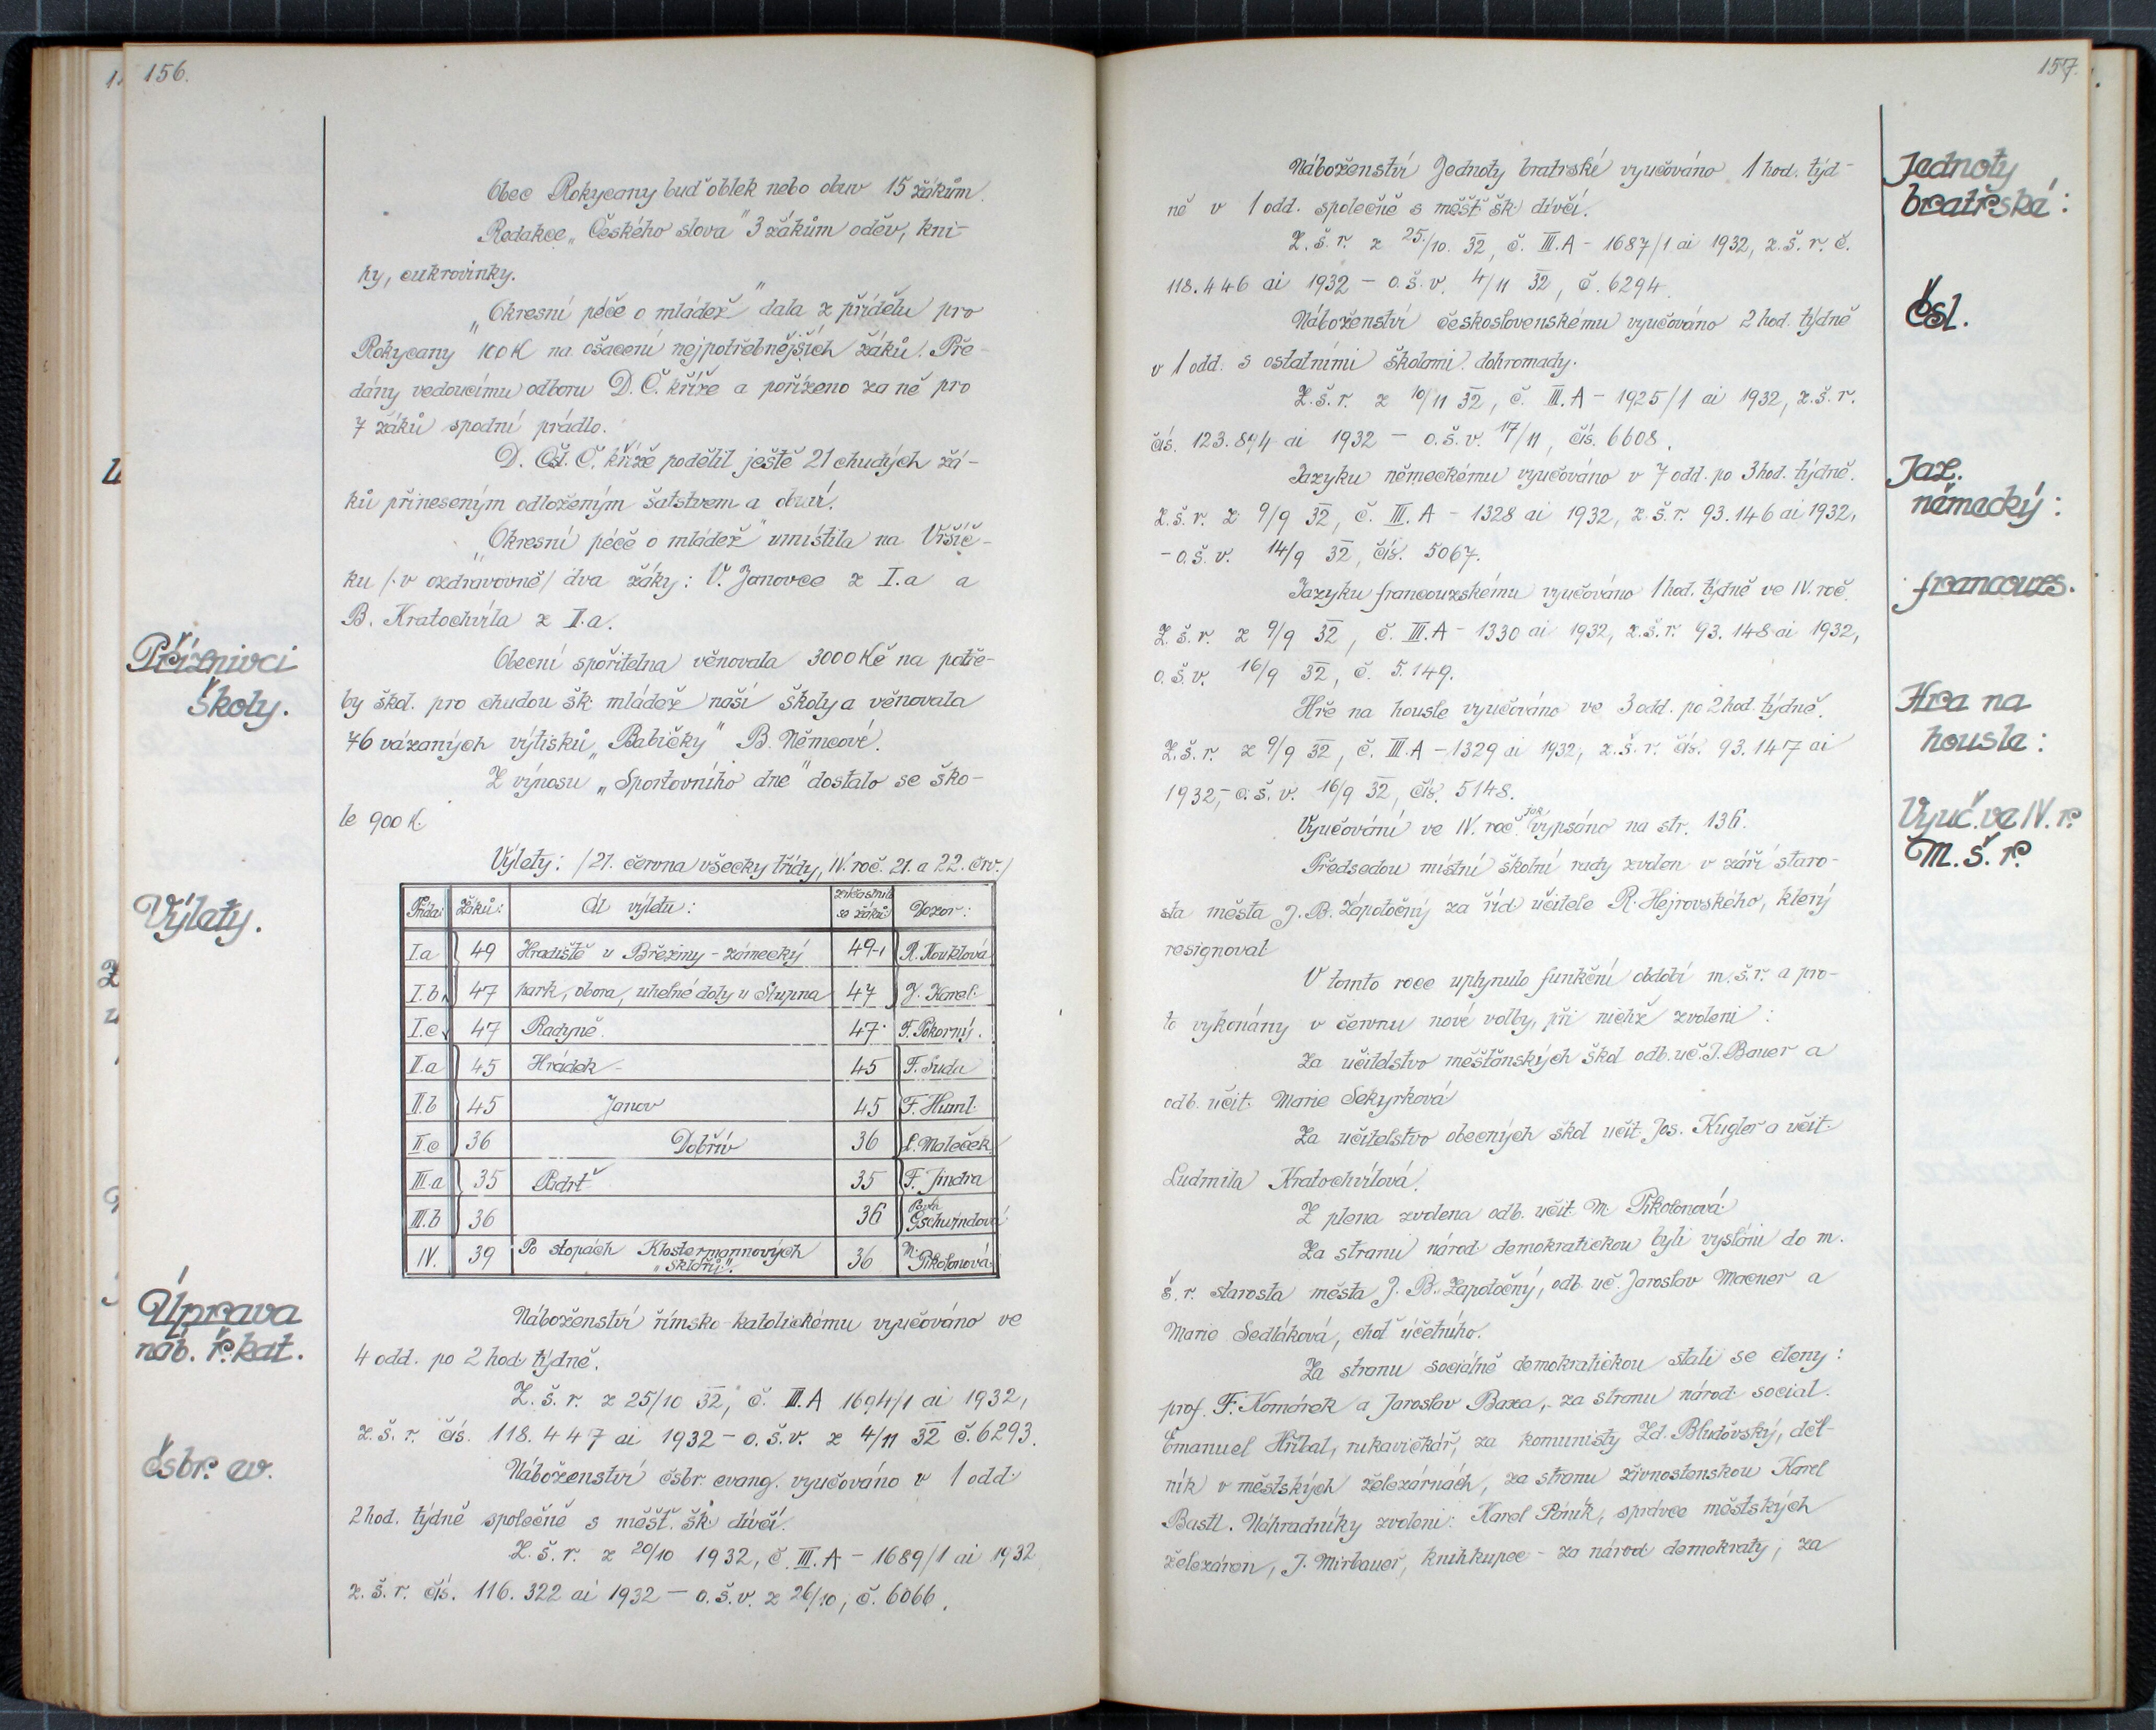 156.
Obec Rokycany buď oblek nebo obuv 15 žákům.
Redakce „Českého slova" 3 žákům oděv, kni-
hy, cukrovinky.
„Okresní péče o mládež" dala z přídělu pro
Rokycany 100 K na ošacení nejpotřebnějších žáků. Pře-
dány vedoucímu odboru D. Č. kříže a pořízeno za ně pro
7 žáků spodní prádlo.
D. Čsl. Č. kříže podělil ještě 21 chudých žá-
ků přineseným odloženým šatstvem a obuví.
„Okresní péče o mládež" umístila na Vršíč-
ku /: v ozdravovně/ dva žáky: V. Janovce z I.a a
B. Kratochvíla z II.a.
Příznivci
školy.
Obecní spořitelna věnovala 3000 Kč na potře-
by škol. pro chudou šk. mládež naší školy a věnovala
46 vázaných výtisků „Babičky" B. Němcové.
Z výnosu „Sportovního dne" dostalo se ško-
le 900 K.
Výlety.
Výlety: /21. června všecky třídy, IV. roč. 21. a 22. črv./
Třída: Žáků: Cíl výletu: zúčastnilo se žáků: Dozor:
I.a 49 Hradiště u Březiny - zámecký 49-1 R. Kouklová
I.b 47 park, obora, uhelné doly u Stupna 47 J. Karel.
I.c 47 Radyně. 47. F. Pokorný.
II.a 45 Hrádek - 45 F. Suda
II.b 45 Janov 45 F. Huml.
II.c 36 Dobřív 36 L. Maleček
III.a 35 Padrť 35 F. Jindra
III.b 36 36 Gschwindová
IV. 39 Po stopách Klostermannových „Sklářů". 36 M. Pikolonová
Úprava
náb. ř. kat.
Náboženství římsko-katolickému vyučováno ve
4 odd. po 2 hod. týdně.
Z. š. r. z 25/10 32, č. III.A 1694/1 ai 1932,
z. š. r. čís. 118.447 ai 1932 - o. š. v. z 4/11 32 č. 6293.
čsbr. ev.
Náboženství čsbr. evang. vyučováno v 1 odd.
2 hod. týdně společně s měšť. šk. dívčí.
Z. š. r. z 20/10 1932, č. III.A - 1689/1 ai 1932
z. š. r. čís. 116.322 ai 1932 - o. š. v. z 26/10, č. 6066.
157.
Jednoty
bratrské:
Náboženství Jednoty bratrské vyučováno 1 hod. týd-
ně v 1 odd. společně s měšť. šk. dívčí.
Z. š. r. z 25./10. 32, č. III.A - 1687/1 ai 1932, z. š. r. č.
118.446 ai 1932 - o. š. v. 4/11 32, č. 6294.
Čsl.
Náboženství československému vyučováno 2 hod. týdně
v 1 odd. s ostatními školami dohromady.
Z. š. r. z 10/11 32, č. III.A - 1925/1 ai 1932, z. š. r.
čís. 123.894 ai 1932 - o. š. v. 17/11, čís. 6608.
Jaz.
německý:
Jazyku německému vyučováno v 7 odd. po 3 hod. týdně.
Z. š. r. z 9/9 32, č. III.A - 1328 ai 1932, z. š. r. 93.146 ai 1932,
- o. š. v. 14/9 32, čís. 5067.
francouzs.
Jazyku francouzskému vyučováno 1 hod. týdně ve IV. roč.
Z. š. r. z 9/9 32, č. III.A - 1330 ai 1932, z. š. r. 93.148 ai 1932,
o. š. v. 16/9 32, č. 5.149.
Hra na
housle:
Hře na housle vyučováno ve 3 odd. po 2 hod. týdně.
Z. š. r. z 9/9 32, č. III.A - 1329 ai 1932, z. š. r. čís. 93.147 ai
1932, - o. š. v. 16/9 32, čís. 5148.
Vyuč. ve IV. r.
Vyučování ve IV. roč. jest vypsáno na str. 136.
M. š. r.
Předsedou místní školní rady zvolen v září staro-
sta města J. B. Zápotočný za říd. učitele R. Hejrovského, který
resignoval.
V tomto roce uplynulo funkční období m. š. r. a pro-
to vykonány v červnu nové volby, při nichž zvoleni:
Za učitelstvo měšťanských škol odb. uč. J. Bauer a
odb. učit. Marie Sekyrková
Za učitelstvo obecných škol učit. Jos. Kugler a učit.
Ludmila Kratochvílová.
Z plena zvolena odb. učit. M. Pikolonová.
Za stranu národ. demokratickou byli vysláni do m.
š. r. starosta města J. B. Zápotočný, odb. uč. Jaroslav Macner a
Marie Sedláková, choť účetního.
Za stranu sociálně demokratickou stali se členy:
prof. F. Komárek a Jaroslav Baxa, - za stranu národ. social.
Emanuel Hříbal, rukavičkář, za komunisty Zd. Bludovský, děl-
ník v městských železárnách, za stranu živnostenskou Karel
Bastl. Náhradníky zvoleni: Karel Pánik, správce městských
železáren, J. Mirbauer, knihkupec - za národ demokraty, za